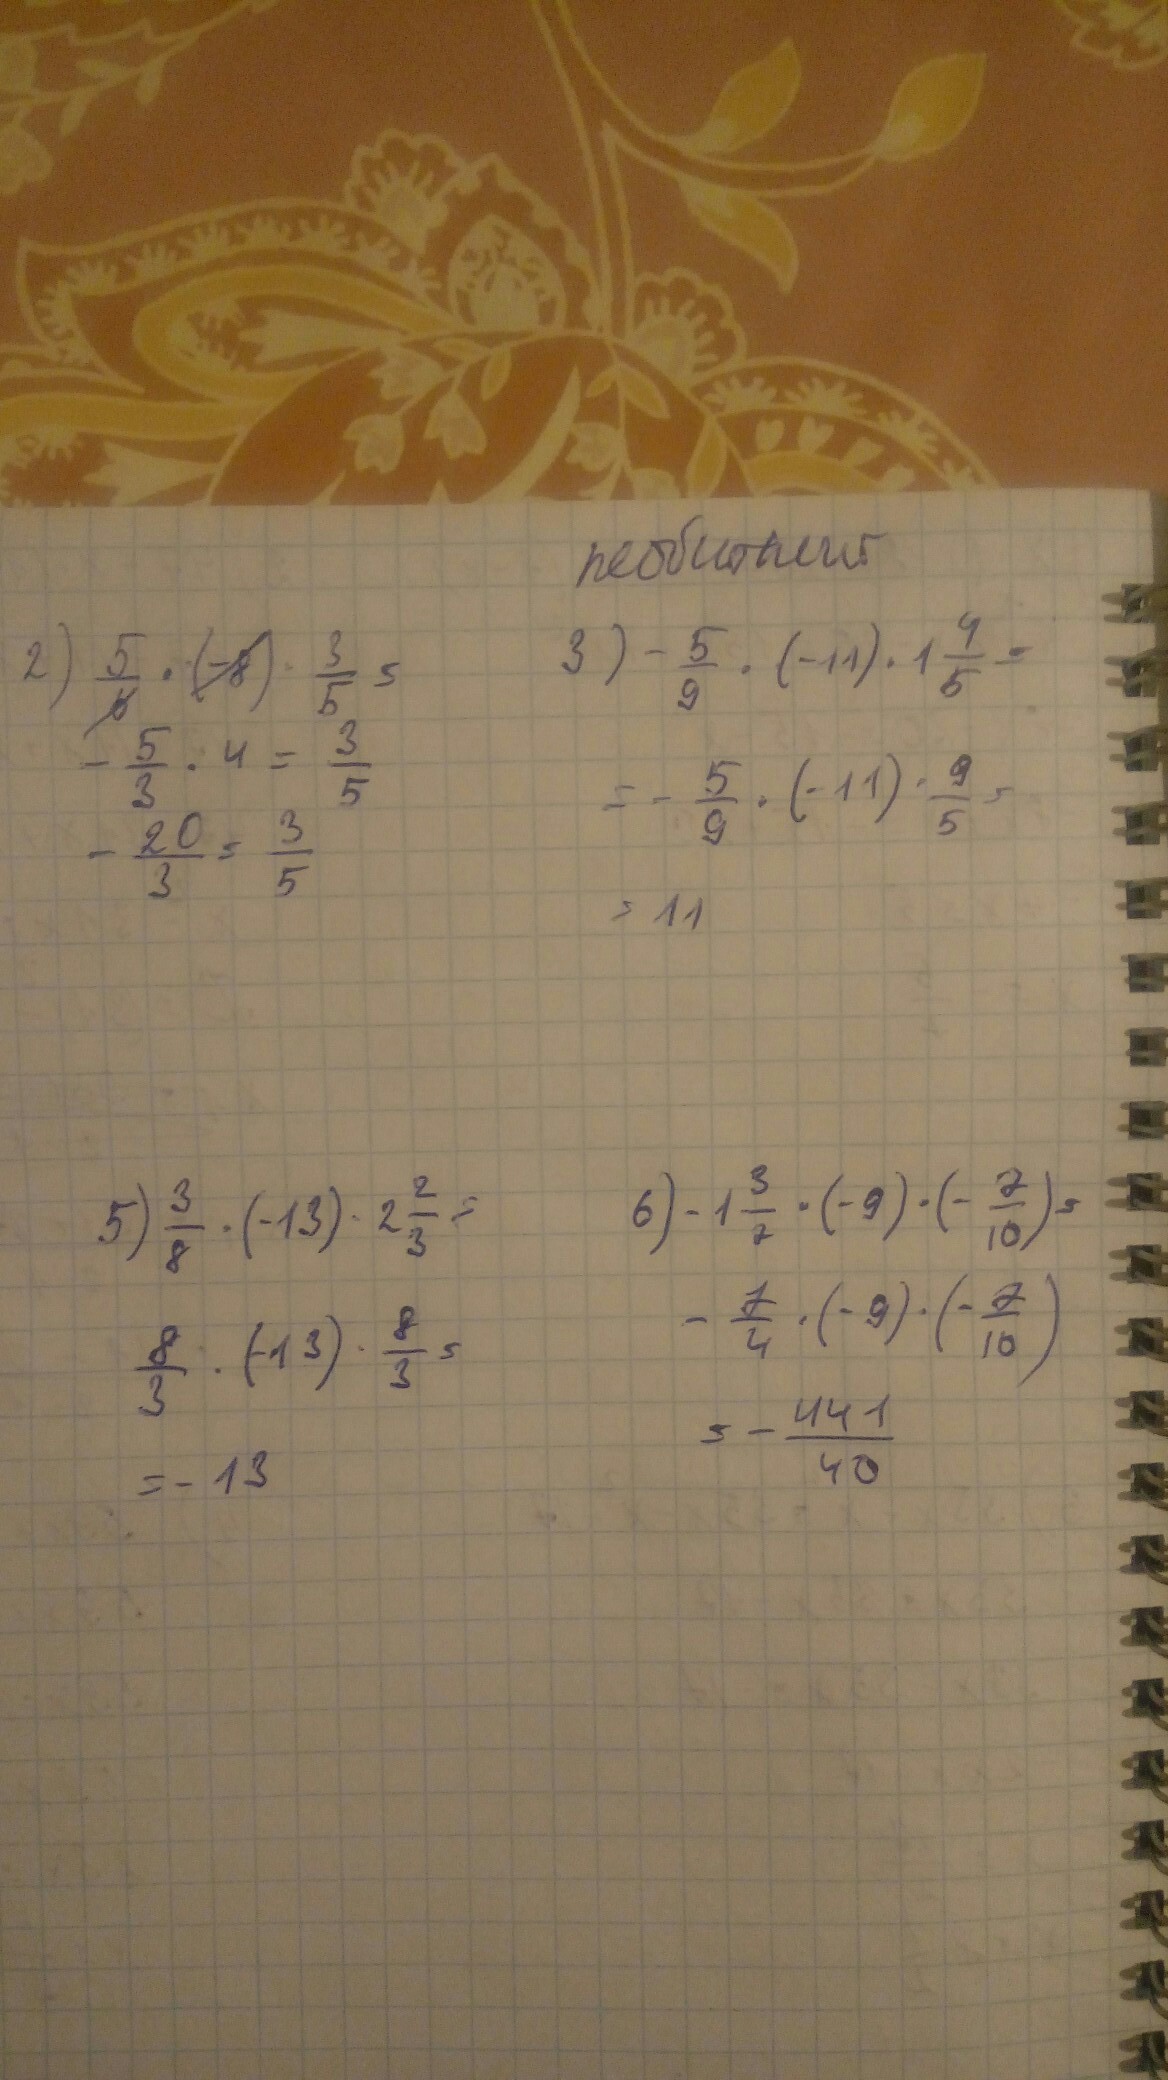 2) 5/6 · (-8) · 3/5 =
- 5/3 · 4 = 3/5
- 20/3 = 3/5
3) - 5/9 · (-11) · 1 4/5 =
= - 5/9 · (-11) · 9/5 =
= 11
5) 3/8 · (-13) · 2 2/3 =
8/3 · (-13) · 8/3 =
= - 13
6) - 1 3/7 · (-9) · (- 7/10) =
- 7/4 · (-9) · (- 7/10)
= - 441/40